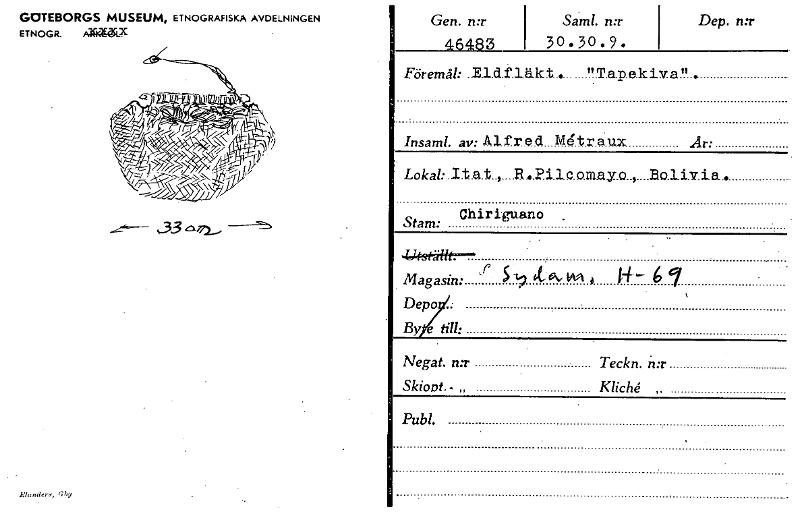 GÖTEBORGS MUSEUM, ETNOGRAFISKA AVDELNINGEN
ETNOGR. ARKEOL.
33 cm
Elanders, Gbg
Gen. n:r Saml. n:r Dep. n:r
46483 30.30.9.
Föremål: Eldfläkt. "Tapekiva".
Insaml. av: Alfred Métraux År:
Lokal: Itat, R.Pilcomayo, Bolivia.
Stam: Chiriguano
Utställt:
Magasin: Sydam. H-69
Depon.:
Byte till:
Negat. n:r Teckn. n:r
Skiopt. - „ Kliché „
Publ.